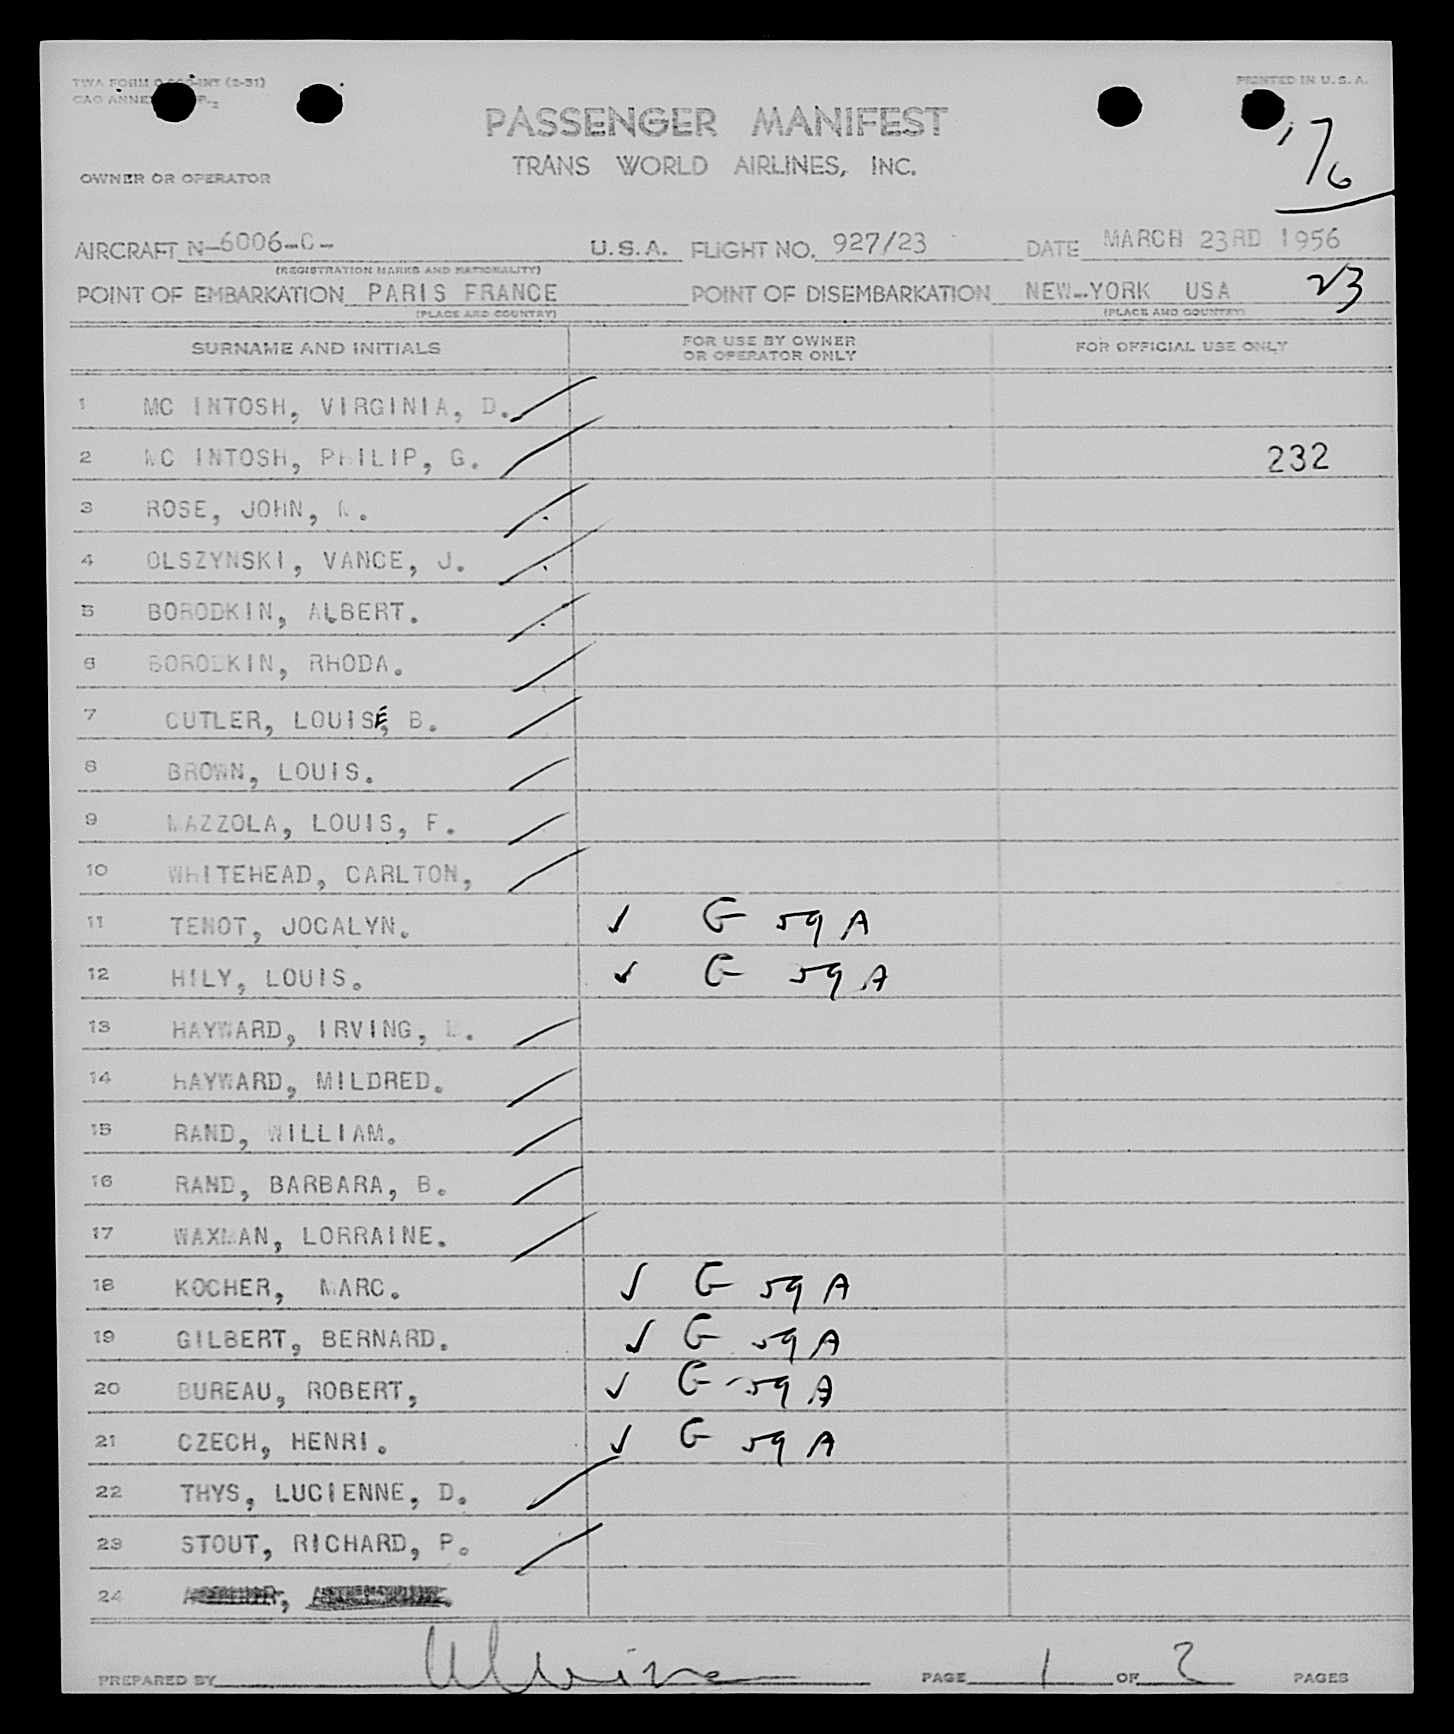 TWA FORM
PRINTED IN U. S. A.
CAO ANNEX
PASSENGER MANIFEST
TRANS WORLD AIRLINES, INC.
17/6
OWNER OR OPERATOR
AIRCRAFT N-6006-C- U.S.A. FLIGHT NO. 927/23 DATE MARCH 23RD 1956
(REGISTRATION MARKS AND NATIONALITY)
POINT OF EMBARKATION PARIS FRANCE POINT OF DISEMBARKATION NEW-YORK USA 23
(PLACE AND COUNTRY) (PLACE AND COUNTRY)
SURNAME AND INITIALS FOR USE BY OWNER OR OPERATOR ONLY FOR OFFICIAL USE ONLY
1 MC INTOSH, VIRGINIA, D.
2 MC INTOSH, PHILIP, G. 232
3 ROSE, JOHN, M.
4 OLSZYNSKI, VANCE, J.
5 BORODKIN, ALBERT.
6 BORODKIN, RHODA.
7 CUTLER, LOUISE, B.
8 BROWN, LOUIS.
9 MAZZOLA, LOUIS, F.
10 WHITEHEAD, CARLTON,
11 TENOT, JOCALYN. ✓ G 59 A
12 HILY, LOUIS. ✓ G 59 A
13 HAYWARD, IRVING, M.
14 HAYWARD, MILDRED.
15 RAND, WILLIAM.
16 RAND, BARBARA, B.
17 WAXMAN, LORRAINE.
18 KOCHER, MARC. ✓ G 59 A
19 GILBERT, BERNARD. ✓ G 59 A
20 BUREAU, ROBERT, ✓ G-59 A
21 CZECH, HENRI. ✓ G 59 A
22 THYS, LUCIENNE, D.
23 STOUT, RICHARD, P.
24
PREPARED BY PAGE 1 OF 2 PAGES